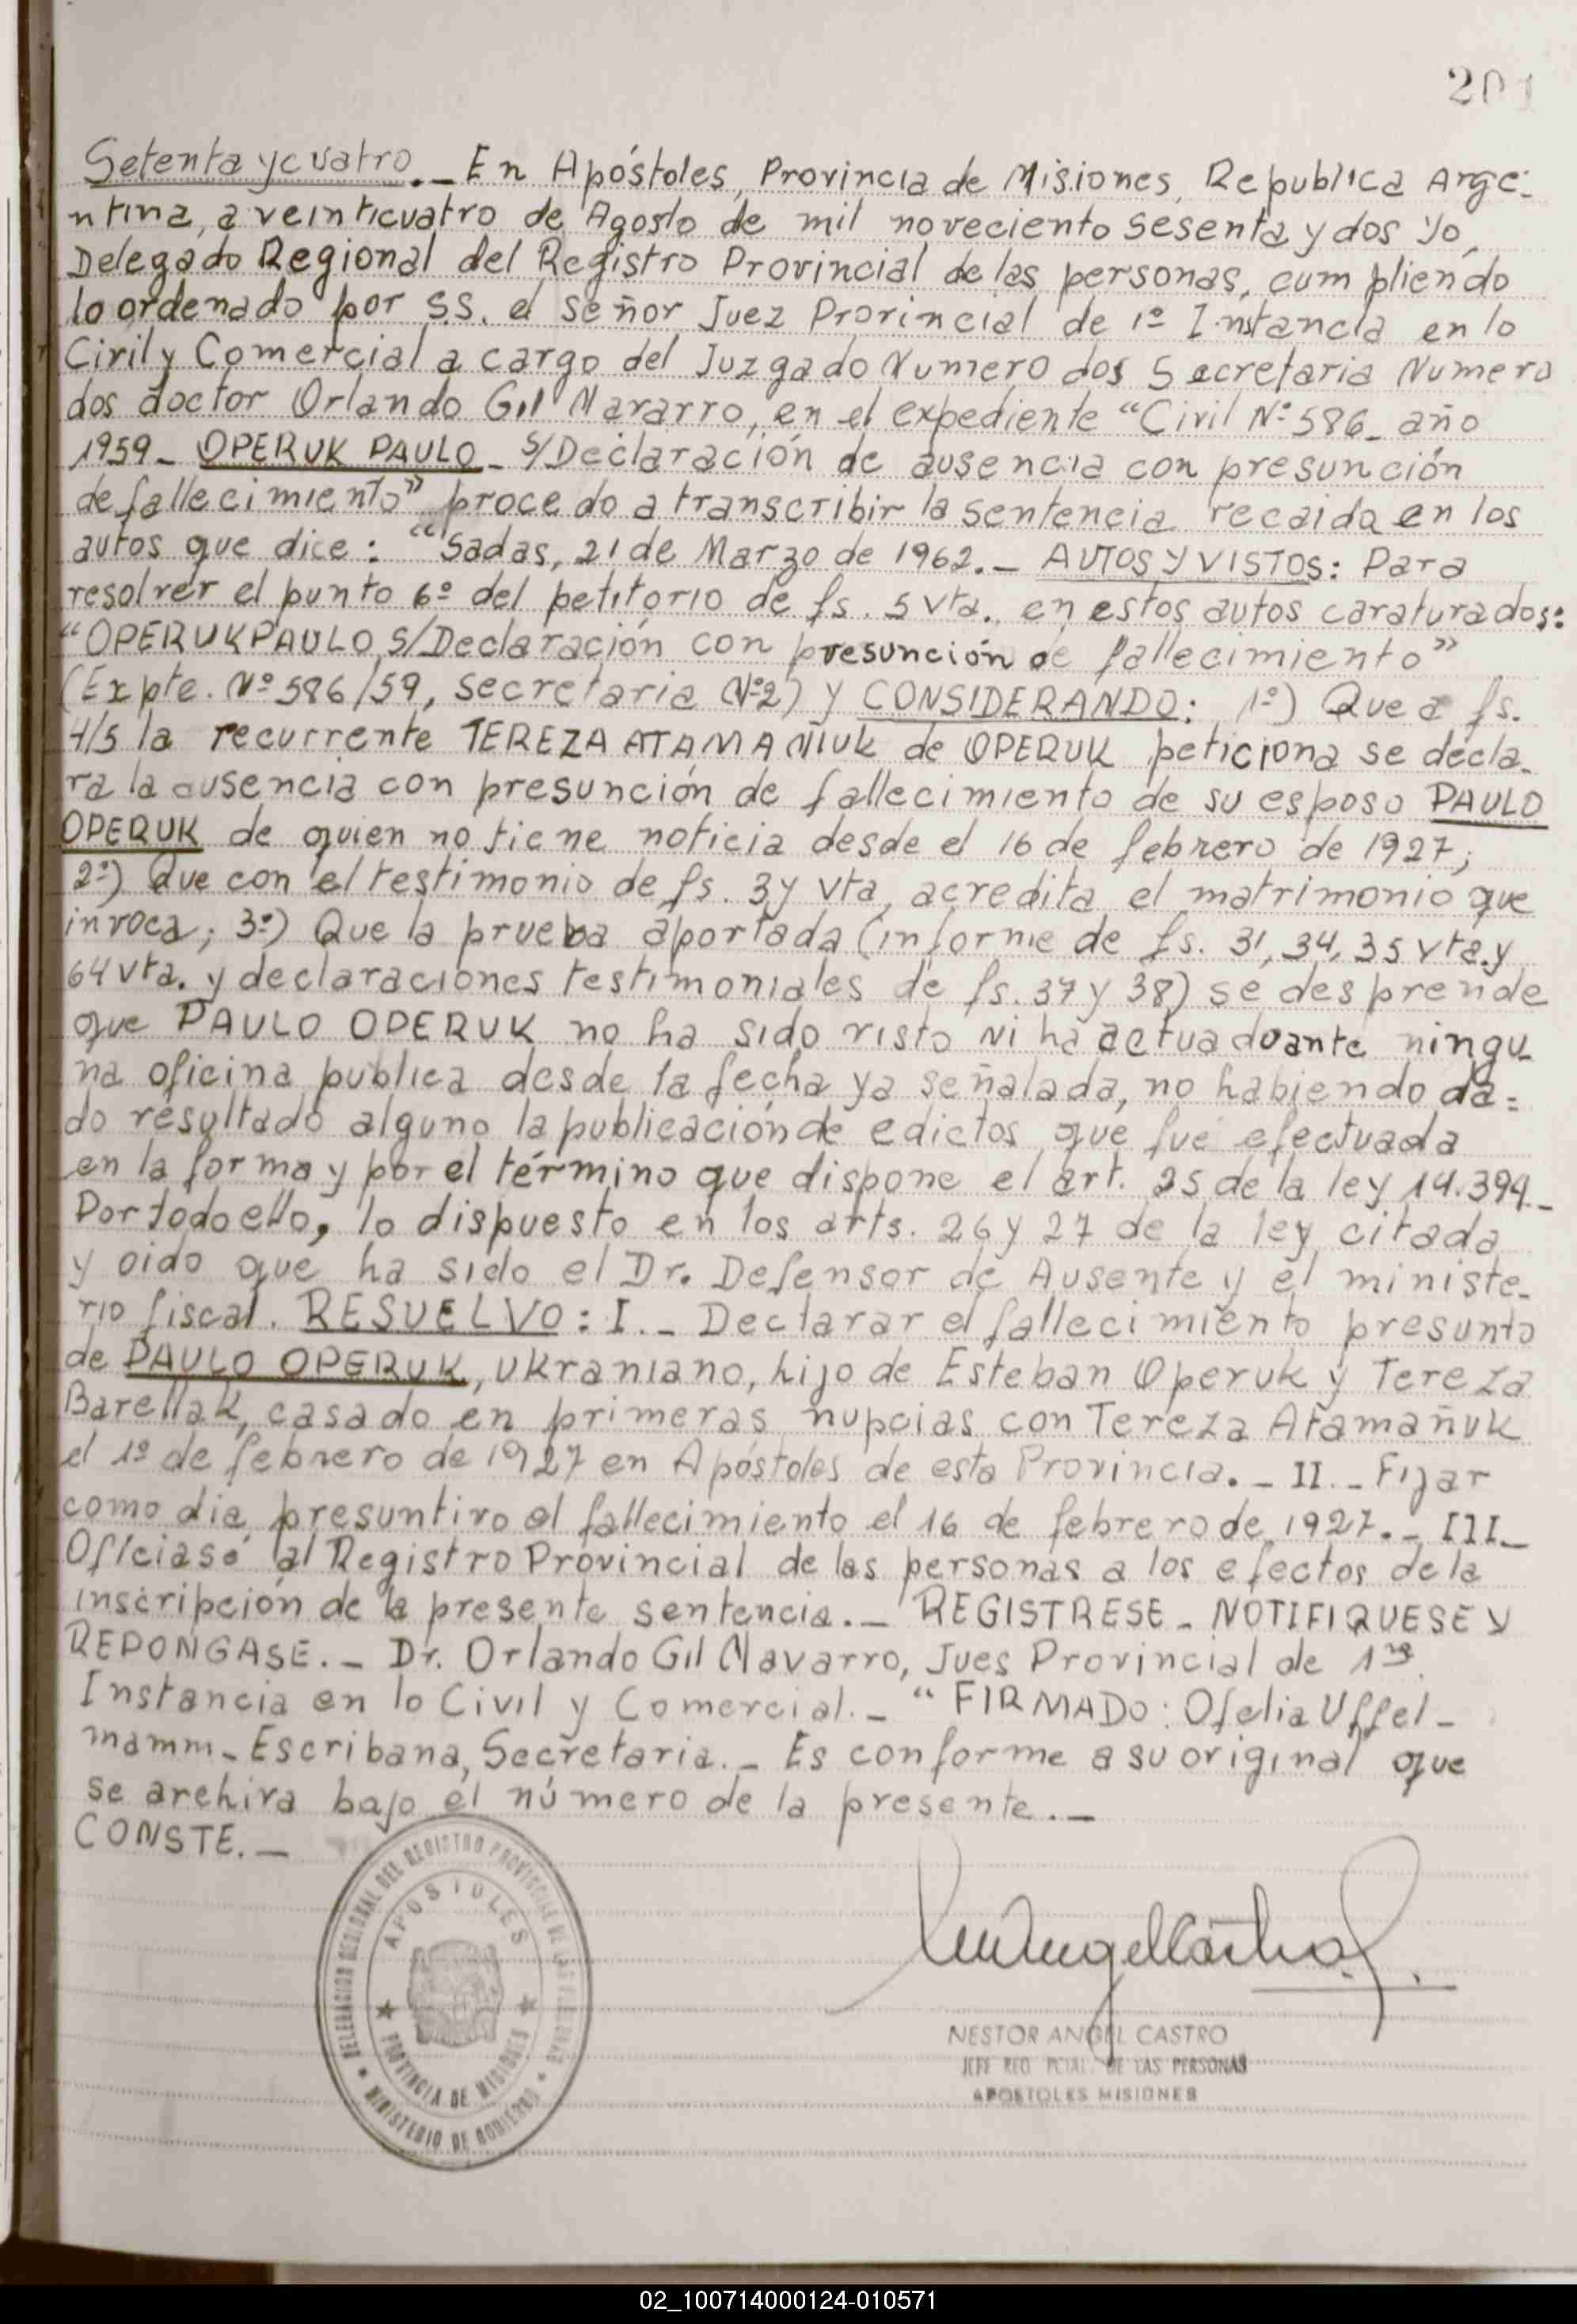 201
Setenta y cuatro._ En Apóstoles, Provincia de Misiones, Republica Arge-
ntina, a veinticuatro de Agosto de mil noveciento sesenta y dos Yo,
Delegado Regional del Registro Provincial de las personas, cumpliendo
lo ordenado por S.S. el señor Juez Provincial de 1º Instancia en lo
Civil y Comercial a cargo del Juzgado Numero dos Secretaria Numero
dos doctor Orlando Gil Navarro, en el expediente "Civil Nº 586_ año
1959_ OPERUK PAULO_ S/Declaración de ausencia con presunción
de fallecimiento" procedo a transcribir la sentencia recaida en los
autos que dice: "Sadas, 21 de Marzo de 1962._ AUTOS Y VISTOS: Para
resolver el punto 6º del petitorio de fs. 5 vta. en estos autos caraturados:
"OPERUK PAULO S/Declaración con presunción de fallecimiento"
(Expte. Nº 586/59, secretaria Nº2) y CONSIDERANDO: 1º) Que a fs.
4/5 la recurrente TEREZA ATAMANIUK de OPERUK peticiona se decla-
ra la ausencia con presunción de fallecimiento de su esposo PAULO
OPERUK de quien no tiene noticia desde el 16 de febrero de 1927;
2º) Que con el testimonio de fs. 3 y vta, acredita el matrimonio que
invoca; 3º) Que la prueba aportada (informe de fs. 31, 34, 35 vta. y
64 vta. y declaraciones testimoniales de fs. 37 y 38) se desprende
que PAULO OPERUK no ha sido visto ni ha actuado ante ningu
na oficina publica desde la fecha ya señalada, no habiendo da=
do resultado alguno la publicación de edictos que fué efectuada
en la forma y por el término que dispone el art. 25 de la ley 14.394_
Por todo ello, lo dispuesto en los arts. 26 y 27 de la ley citada
y oido que ha sido el Dr. Defensor de Ausente y el ministe-
rio fiscal. RESUELVO: I._ Declarar el fallecimiento presunto
de PAULO OPERUK, ukraniano, hijo de Esteban Operuk y Tereza
Barellak, casado en primeras nupcias con Tereza Atamañuk
el 1º de febrero de 1927 en Apóstoles de esta Provincia._ II._ Fijar
como dia presuntivo el fallecimiento el 16 de febrero de 1927._ III_
Oficiase al Registro Provincial de las personas a los efectos de la
inscripción de la presente sentencia._ REGISTRESE_ NOTIFIQUESE Y
REPONGASE._ Dr. Orlando Gil Navarro, Jues Provincial de 1ra.
Instancia en lo Civil y Comercial._ "FIRMADO: Ofelia Uffel-
mamm_ Escribana, Secretaria._ Es conforme a su original que
se archiva bajo el número de la presente._
CONSTE._
DELEGACION REGIONAL DEL REGISTRO PROVINCIAL DE LAS PERSONAS
APOSTOLES
PROVINCIA DE MISIONES
MINISTERIO DE GOBIERNO
NESTOR ANGEL CASTRO
JEFE REG. PCIAL. DE LAS PERSONAS
APOSTOLES MISIONES
02_100714000124-010571